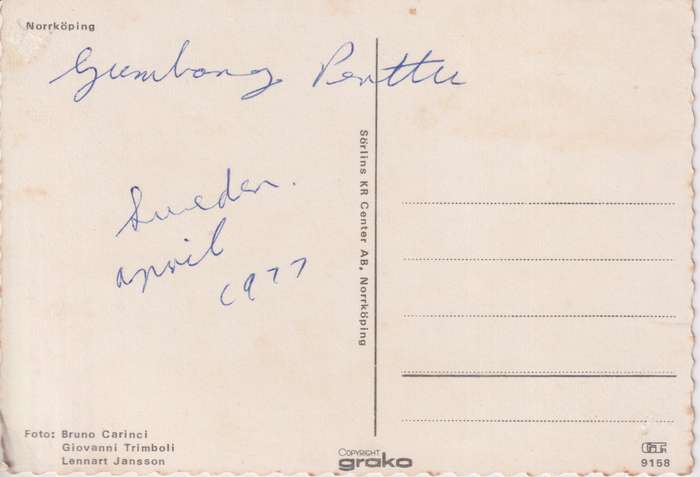 Norrköping
Gumbang Penttu
Sweden.
april
1977
Sörlins KR Center AB, Norrköping
Foto: Bruno Carinci
Giovanni Trimboli
Lennart Jansson
COPYRIGHT
grako
9158